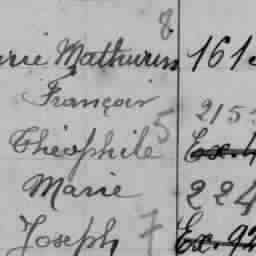 8
Mathurin 161
François 215
Théophile 5 Ex.
Marie 224
Joseph 7 Ex. 92